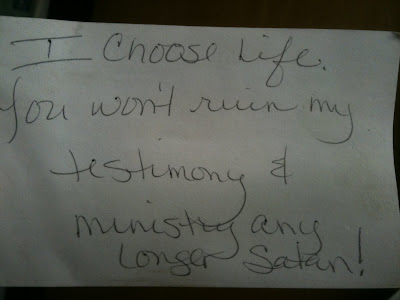 I Choose Life.
You won't ruin my
testimony &
ministry any
longer Satan!